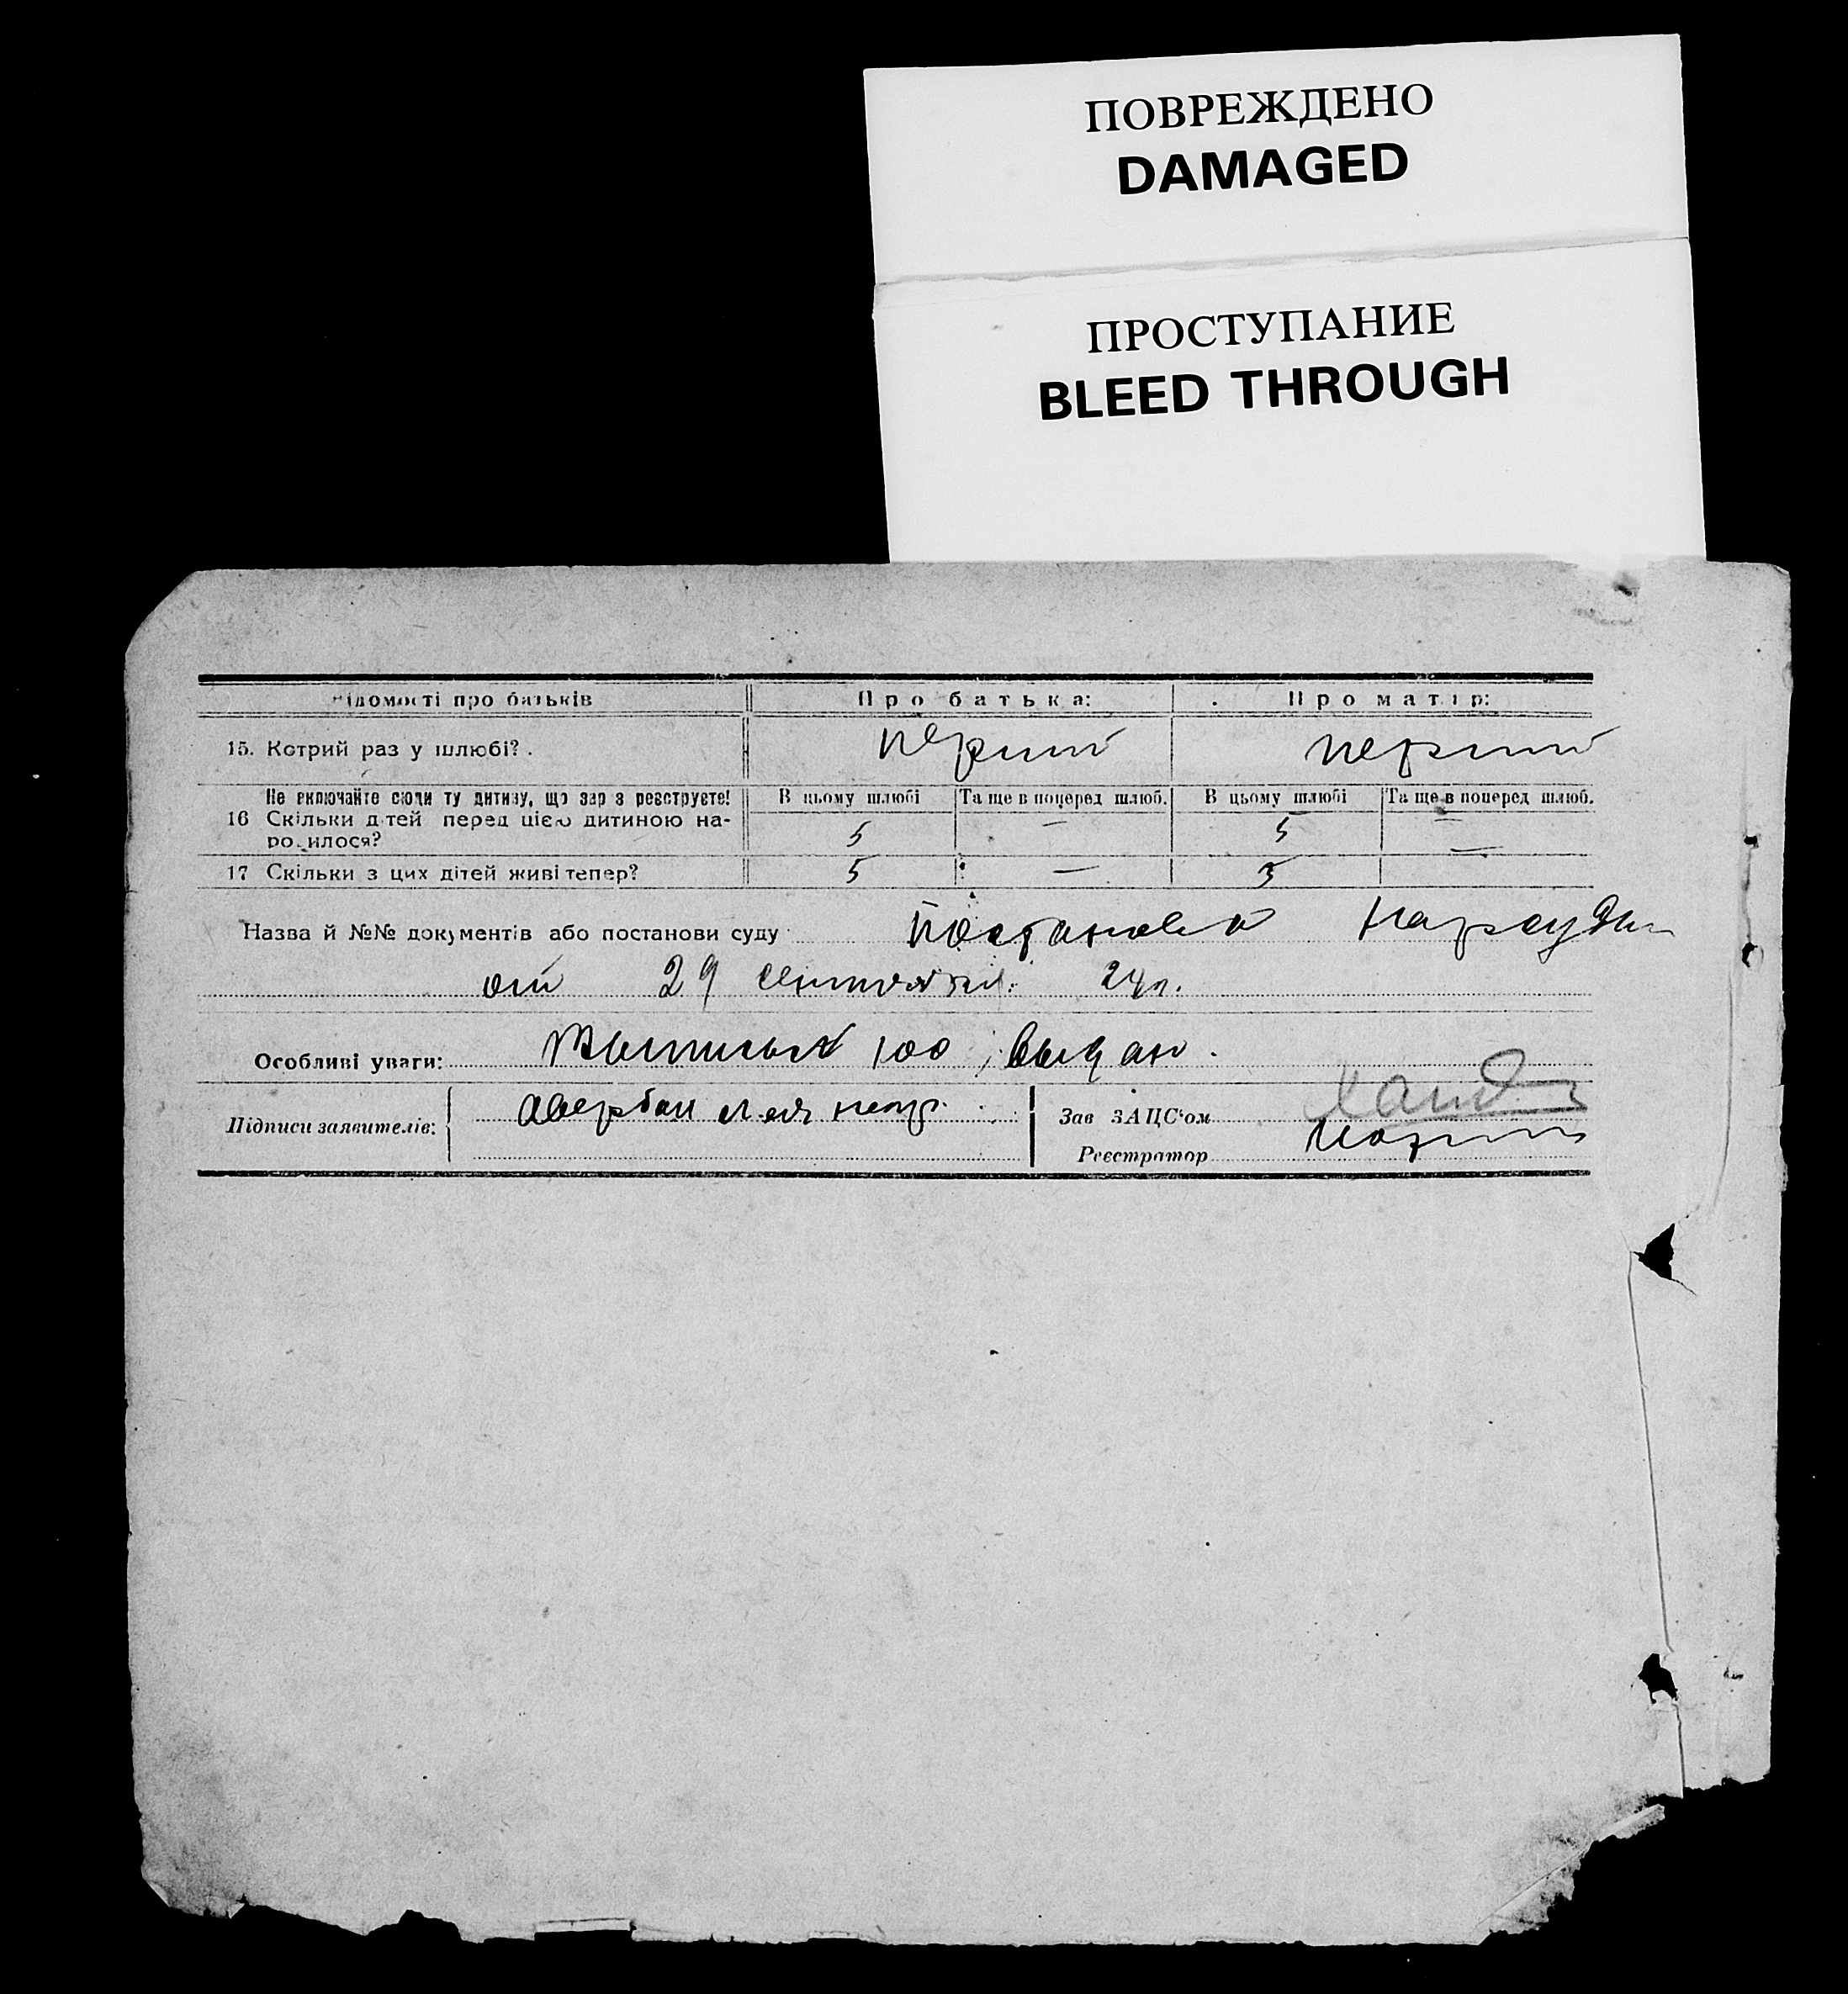 ПОВРЕЖДЕНО
DAMAGED
ПРОСТУПАНИЕ
BLEED THROUGH
ідомості про батьків Про батька: Про матір:
15. Котрий раз у шлюбі? . перший перший
Не включайте сюди ту дитину, що зар з реєструєте! В цьому шлюбі Та ще в поперед шлюб. В цьому шлюбі Та ще в поперед шлюб.
16 Скільки дітей перед цією дитиною на- 5 — 5 —
ро илося?
17 Скільки з цих дітей живі тепер? 5 — 5 —
Назва й №№ документів або постанови суду Нарсуда
от 29 сентября 24 г.
Особливі уваги: 100 выдан.
Підписи заявителів: Авербах
Зав ЗАЦС'ом
Реєстратор